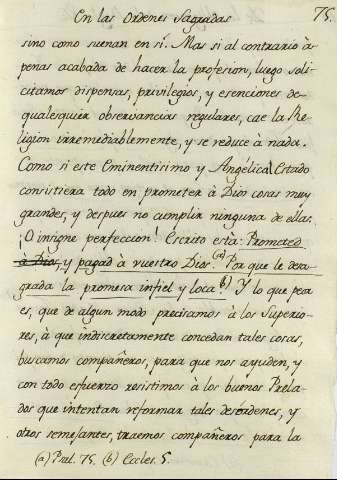 En las Ordenes Sagradas 75.
sino como suenan en sí. Mas si al contrario à-
penas acabada de hacer la profesion, luego soli-
citamos dispensas, privilegios, y esenciones de
qualesquier observancias regulares, cae la Re-
ligion irremediablemente, y se reduce à nada.
Como si este Eminentisimo y Angélical Estado
consistiera todo en prometer à Dios cosas muy
grandes, y despues no cumplir ninguna de ellas.
¡O insigne perfeccion! Escrito està: Prometed
à Dios, y pagad à vuestro Dios.(a) Por que le desa-
grada la promesa infiel y loca.(b) Y lo que peor
es, que de algun modo precisamos à los Superio-
res, à que indiscretamente concedan tales cosas,
buscamos compañeros, para que nos ayuden, y
con todo esfuerzo resistimos à los buenos Prela-
dos que intentan reformar tales desórdenes, y
otros semejantes, traemos compañeros para la
(a) Psal. 75. (b) Eccles. 5.